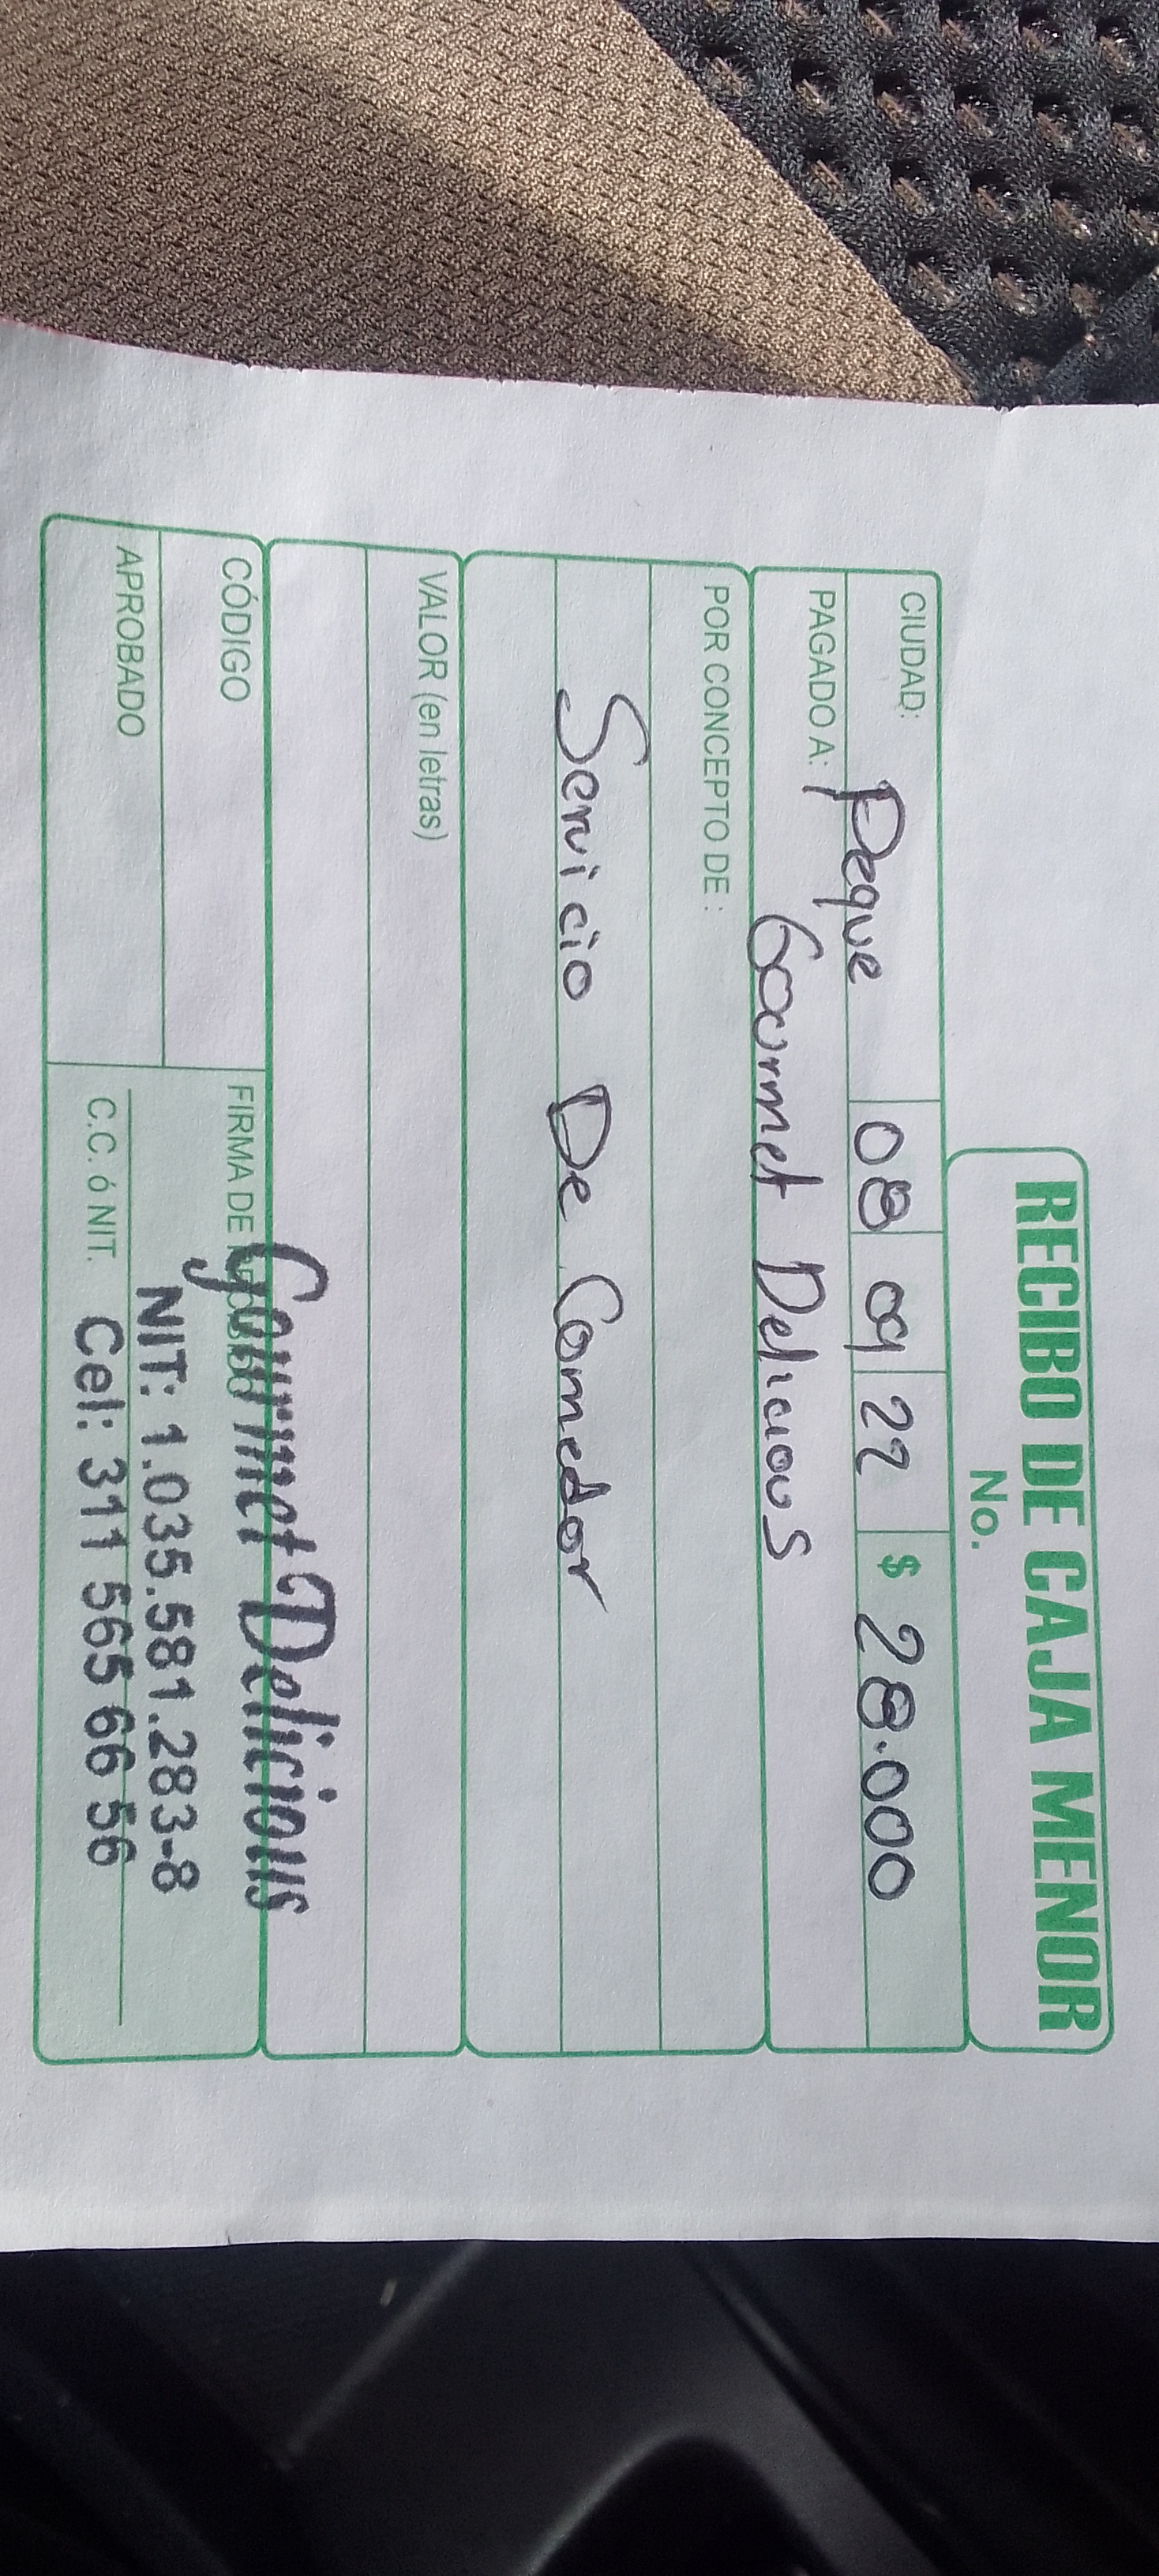 RECIBO DE CAJA MENOR
No.
CIUDAD: Peque 08 09 22 $ 28.000
PAGADO A: Gourmet Delicious
POR CONCEPTO DE:
Servicio De Comedor
VALOR (en letras)
CÓDIGO
FIRMA DE RECIBIDO
Gourmet Delicious
NIT: 1.035.581.283-8
APROBADO
C.C. ó NIT.
Cel: 311 565 66 56